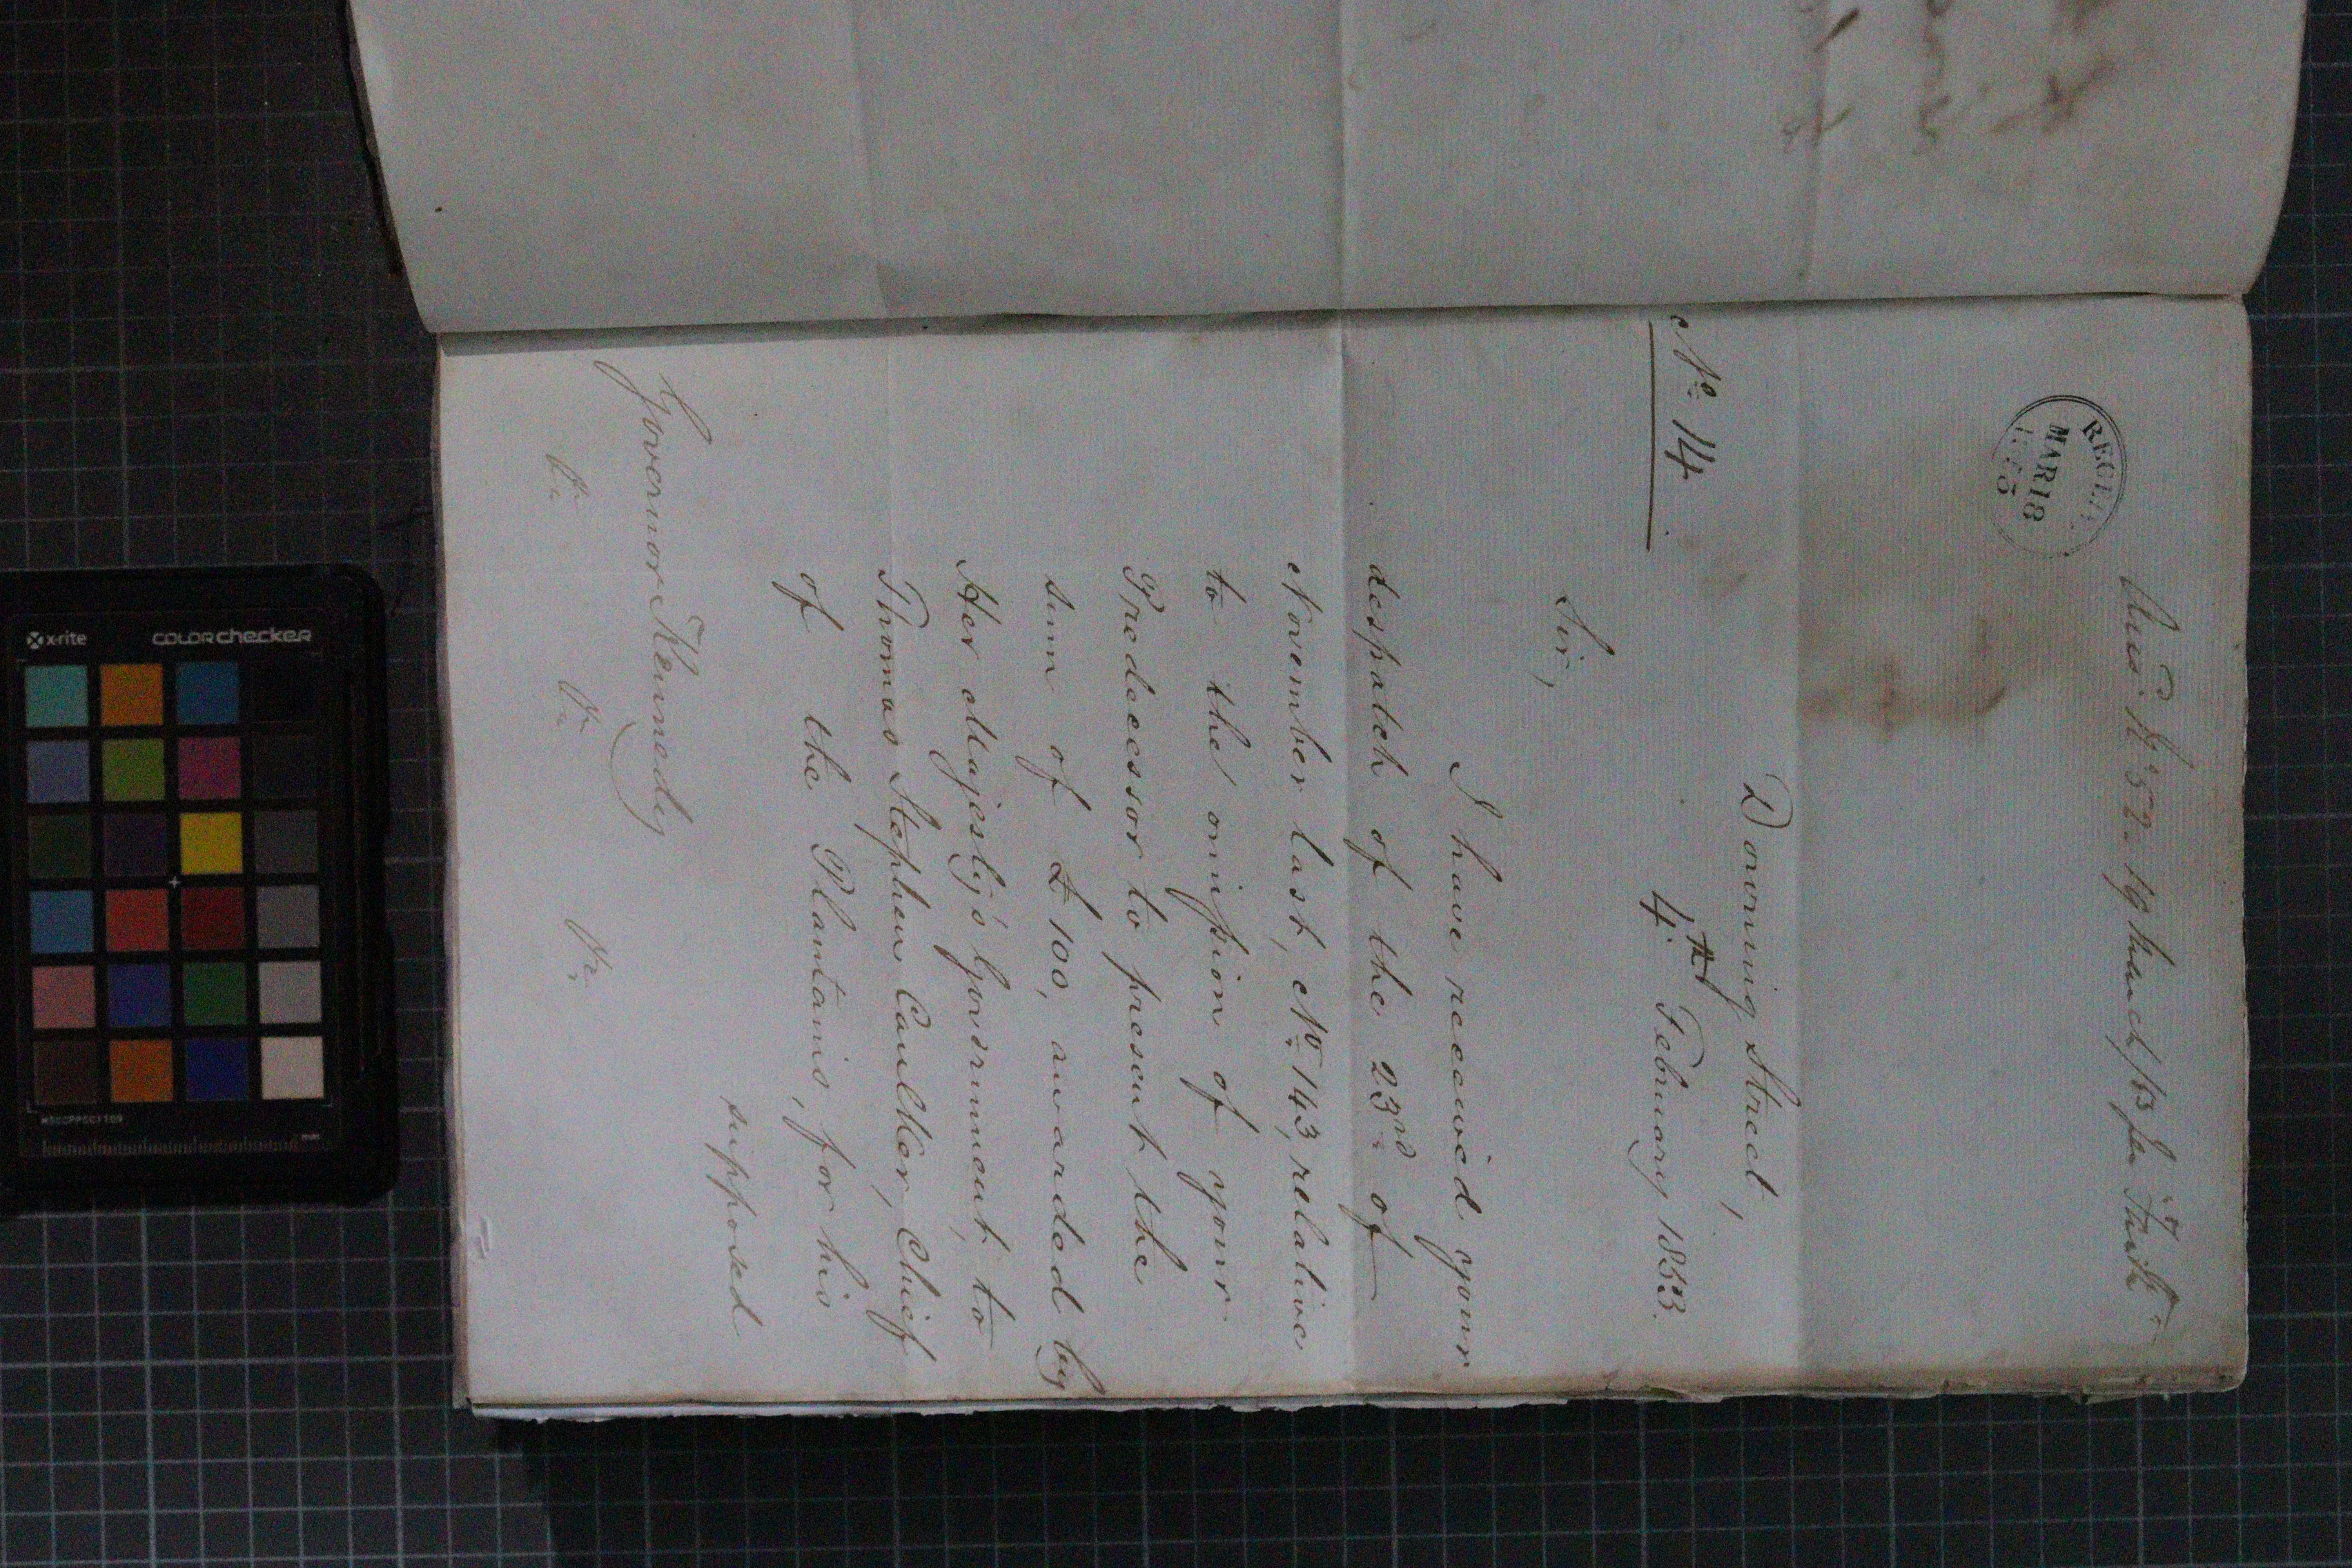 Ansd. No. 52. 19 March/53
RECED.
MAR 18
1853
Downing Street,
No. 14
4th February 1853.
Sir,
I have received your
despatch of the 23rd of
November last, No. 143, relative
to the omission of your
Predecessor to present the
sum of £100, awarded by
Her Majesty's Government, to
Thomas Stephen Caulker, Chief
of the Plantains, for his
supposed
Governor Kennedy
&c. &c. &c.
x-rite COLORchecker
mm